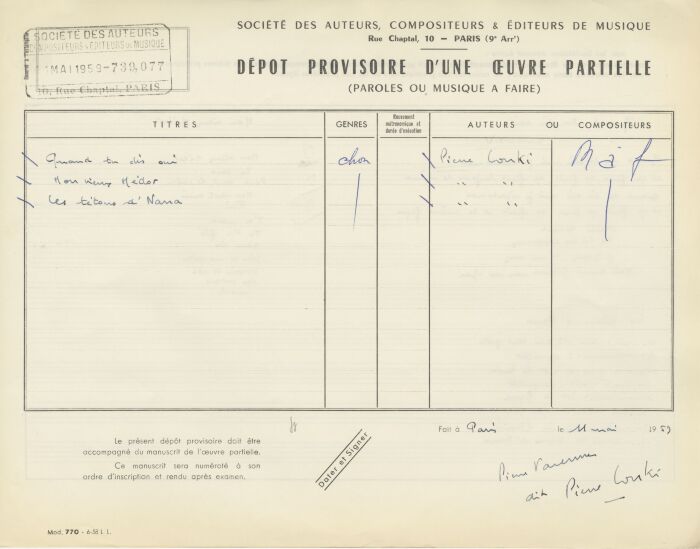 SOCIÉTÉ DES AUTEURS, COMPOSITEURS & ÉDITEURS DE MUSIQUE
Rue Chaptal, 10 – PARIS (9e Arrt)
SOCIÉTÉ DES AUTEURS
COMPOSITEURS & ÉDITEURS DE MUSIQUE
MAI 1959-733,077
10, Rue Chaptal, PARIS
DÉPOT PROVISOIRE D'UNE ŒUVRE PARTIELLE
(PAROLES OU MUSIQUE A FAIRE)
TITRES GENRES Mouvement métronomique et durée d'exécution AUTEURS OU COMPOSITEURS
Quand tu dis oui chon Pierre Louki M à f
Mon vieux Médor " "
Les tétons d'Nana " "
Fait à Paris le 11 mai 1959
Le présent dépôt provisoire doit être
accompagné du manuscrit de l'œuvre partielle.
Ce manuscrit sera numéroté à son
ordre d'inscription et rendu après examen.
Dater et Signer
Pierre Varenne
dit Pierre Louki
Mod. 770 - 6-58 I. L.